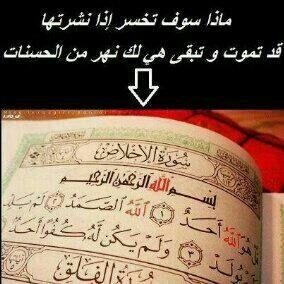 ماذا سوف تخسر إذا نشرتها
قد تموت و تبقى هي لك نهر من الحسنات
سُورَةُ الإِخْلَاصِ
بِسْمِ اللَّهِ الرَّحْمَٰنِ الرَّحِيمِ
قُلْ هُوَ اللَّهُ أَحَدٌ ١ اللَّهُ الصَّمَدُ ٢ لَمْ يَلِدْ
يُولَدْ ٣ وَلَمْ يَكُن لَّهُ كُفُوًا أَحَدٌ
سُورَةُ الْفَلَقِ